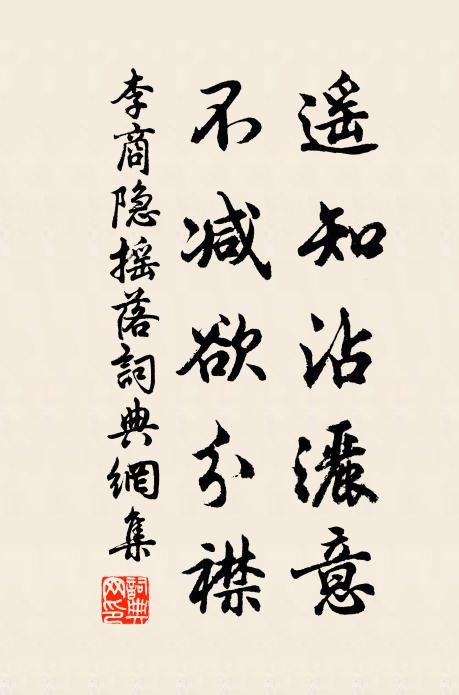 遥知沾灑意
不减欲分襟
李商隐摇落詞典網集
詞典
网印